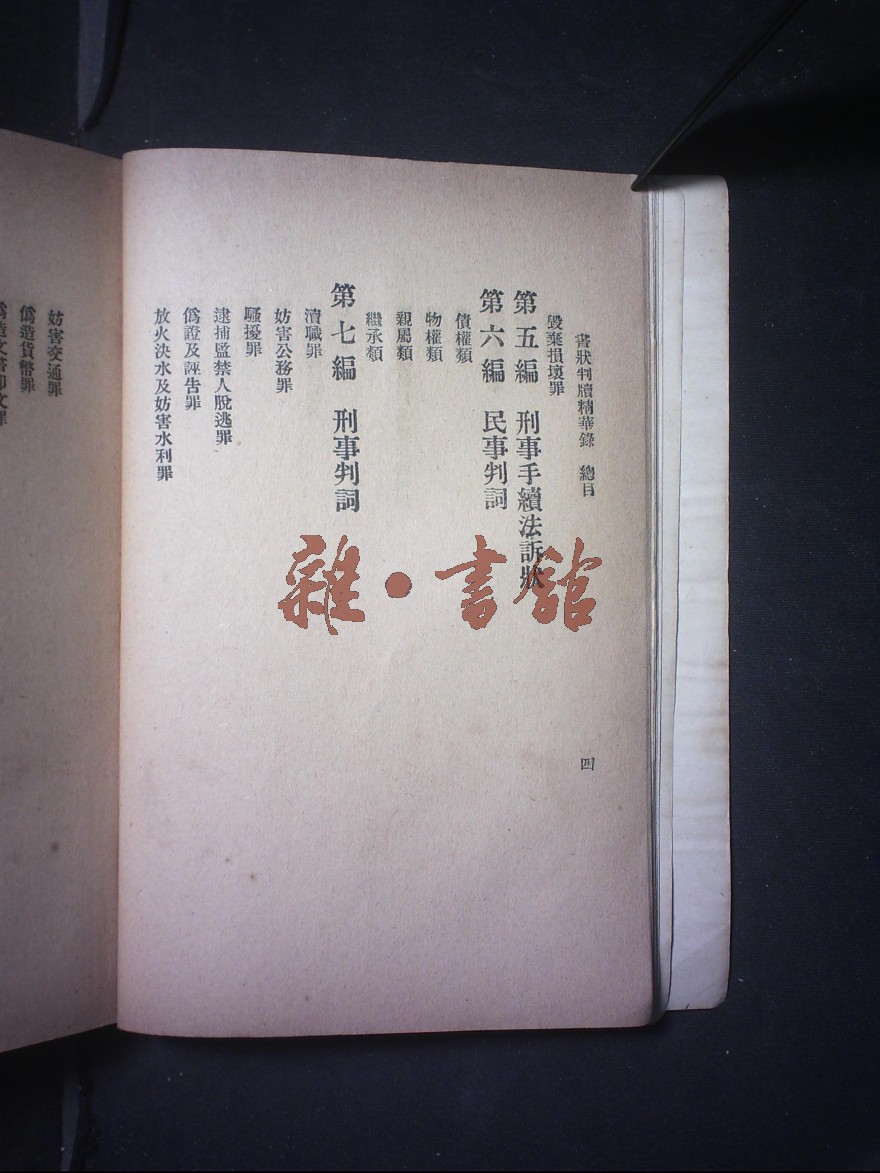 書狀判牘精華錄　總目
四
毀棄損壞罪
第五編　刑事手續法訴狀
第六編　民事判詞
債權類
物權類
親屬類
繼承類
第七編　刑事判詞
瀆職罪
妨害公務罪
騷擾罪
逮捕監禁人脫逃罪
僞證及誣告罪
放火決水及妨害水利罪
妨害交通罪
僞造貨幣罪
僞造文書印文罪
雜·書館